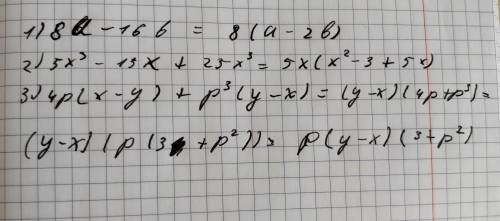 1) 8a - 16b = 8(a - 2b)
2) 5x³ - 15x + 25x³ = 5x(x² - 3 + 5x)
3) 4p(x-y) + p³(y-x) = (y-x)(4p+p³) =
(y-x)(p(3+p²)) = p(y-x)(3+p²)